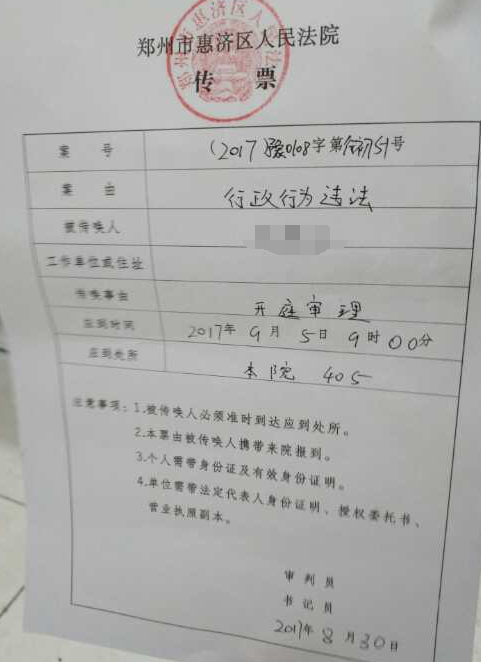 郑州市惠济区人民法院
传票
案号 (2017)豫0108字第行初51号
案由 行政行为违法
被传唤人
工作单位或住址
传唤事由 开庭审理
应到时间 2017年9月5日9时00分
应到处所 本院 405
注意事项：1.被传唤人必须准时到达应到处所。
2.本票由被传唤人携带来院报到。
3.个人需带身份证及有效身份证明。
4.单位需带法定代表人身份证明、授权委托书、
营业执照副本。
审判员
书记员
2017年8月30日